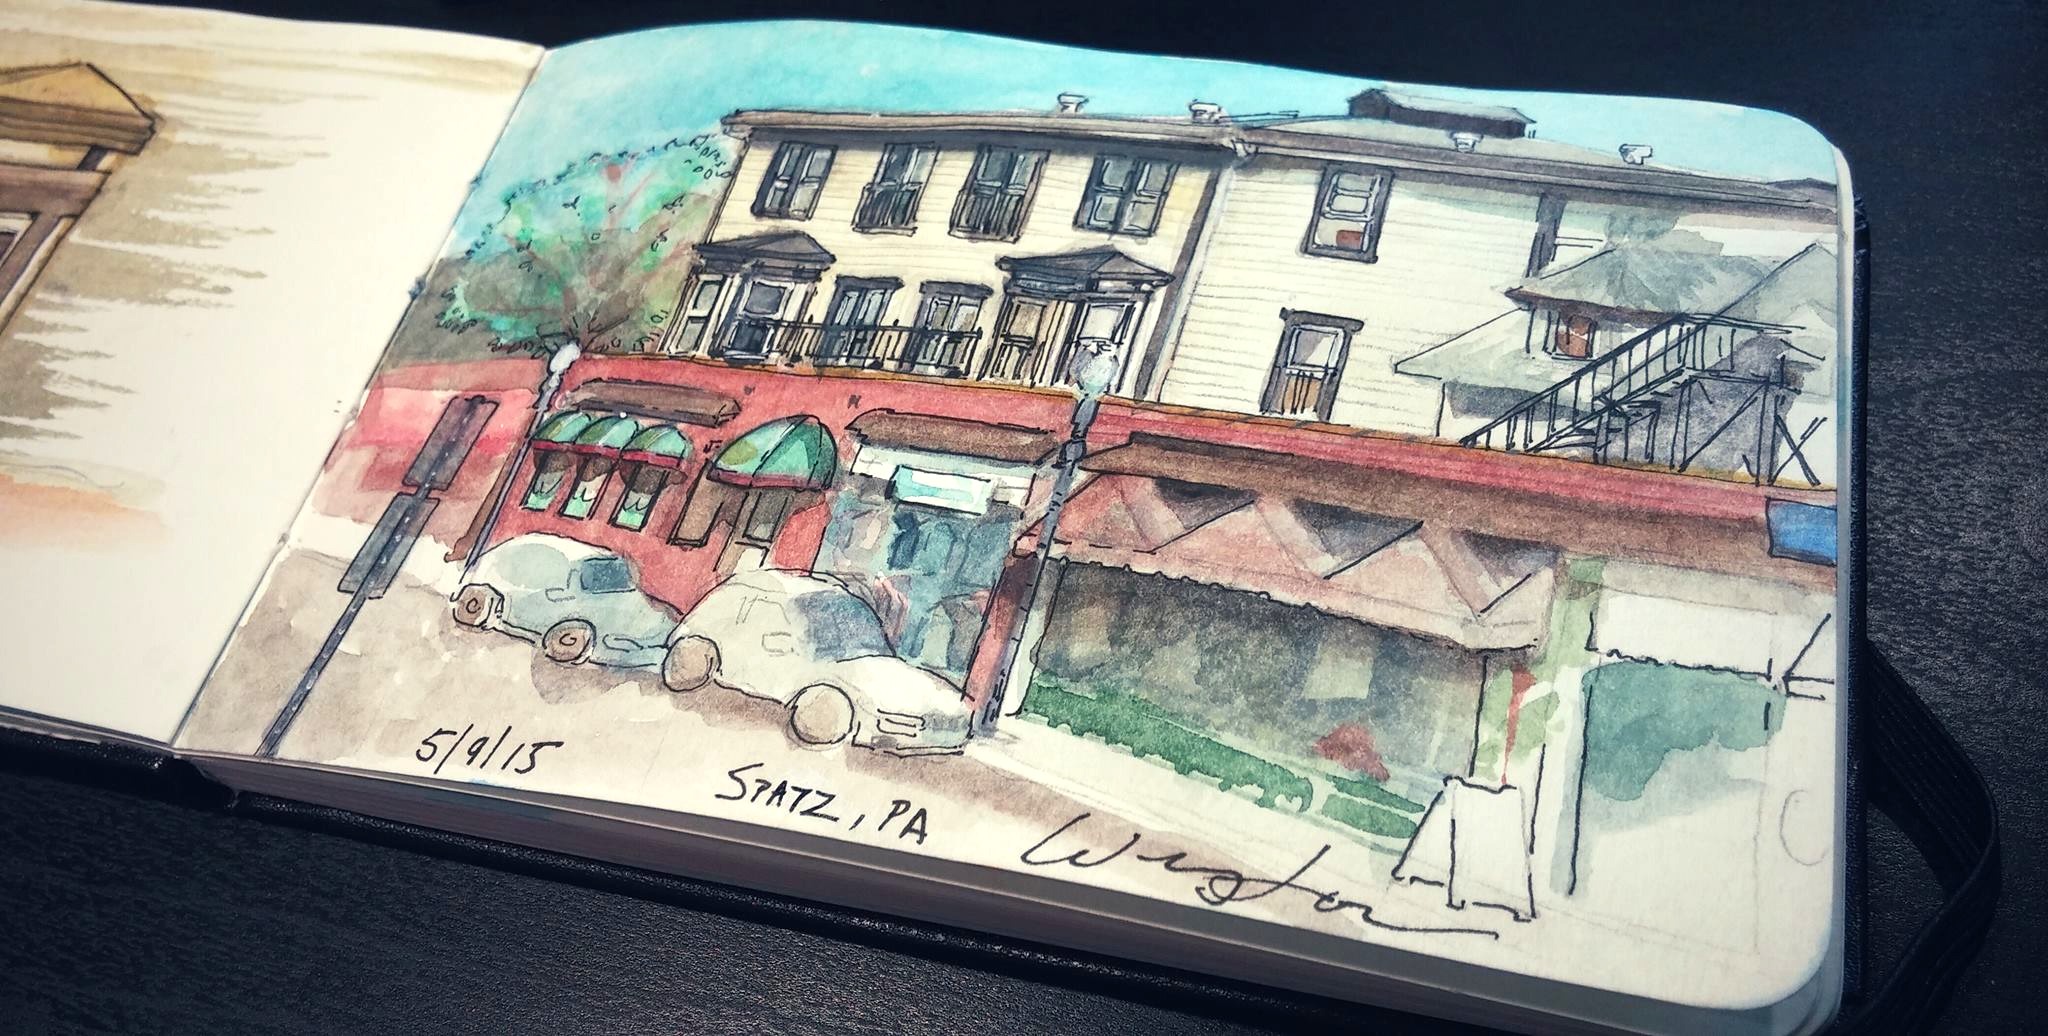 5/9/15
SPATZ, PA
Weston